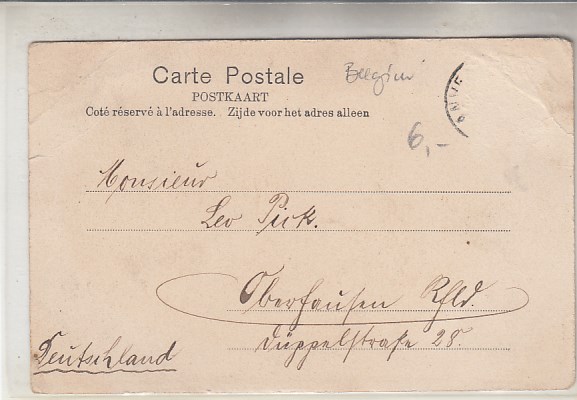 Carte Postale
POSTKAART
Coté réservé à l'adresse. Zijde voor het adres alleen
6,-
Monsieur
Leo Pick.
Oberhausen Rhld.
Düppelstraße 28.
Deutschland